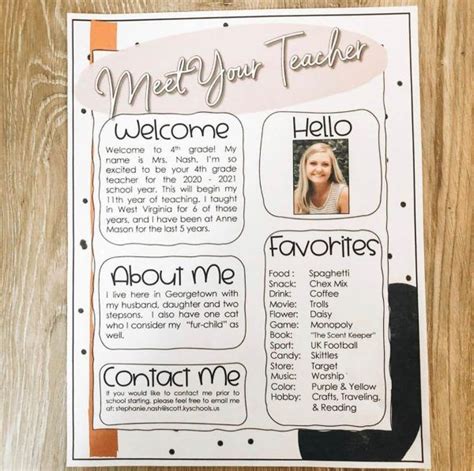 Meet Your Teacher
Welcome
Welcome to 4th grade! My
name is Mrs. Nash. I'm so
excited to be your 4th grade
teacher for the 2020 - 2021
school year. This will begin my
11th year of teaching. I taught
in West Virginia for 6 of those
years, and I have been at Anne
Mason for the last 5 years.
Hello
About Me
I live here in Georgetown with
my husband, daughter and two
stepsons. I also have one cat
who I consider my "fur-child" as
well.
Contact Me
If you would like to contact me prior to
school starting, please feel free to email me
at: stephanie.nash@scott.kyschools.us
Favorites
Food : Spaghetti
Snack: Chex Mix
Drink: Coffee
Movie: Trolls
Flower: Daisy
Game: Monopoly
Book: "The Scent Keeper"
Sport: UK Football
Candy: Skittles
Store: Target
Music: Worship
Color: Purple & Yellow
Hobby: Crafts, Traveling,
& Reading